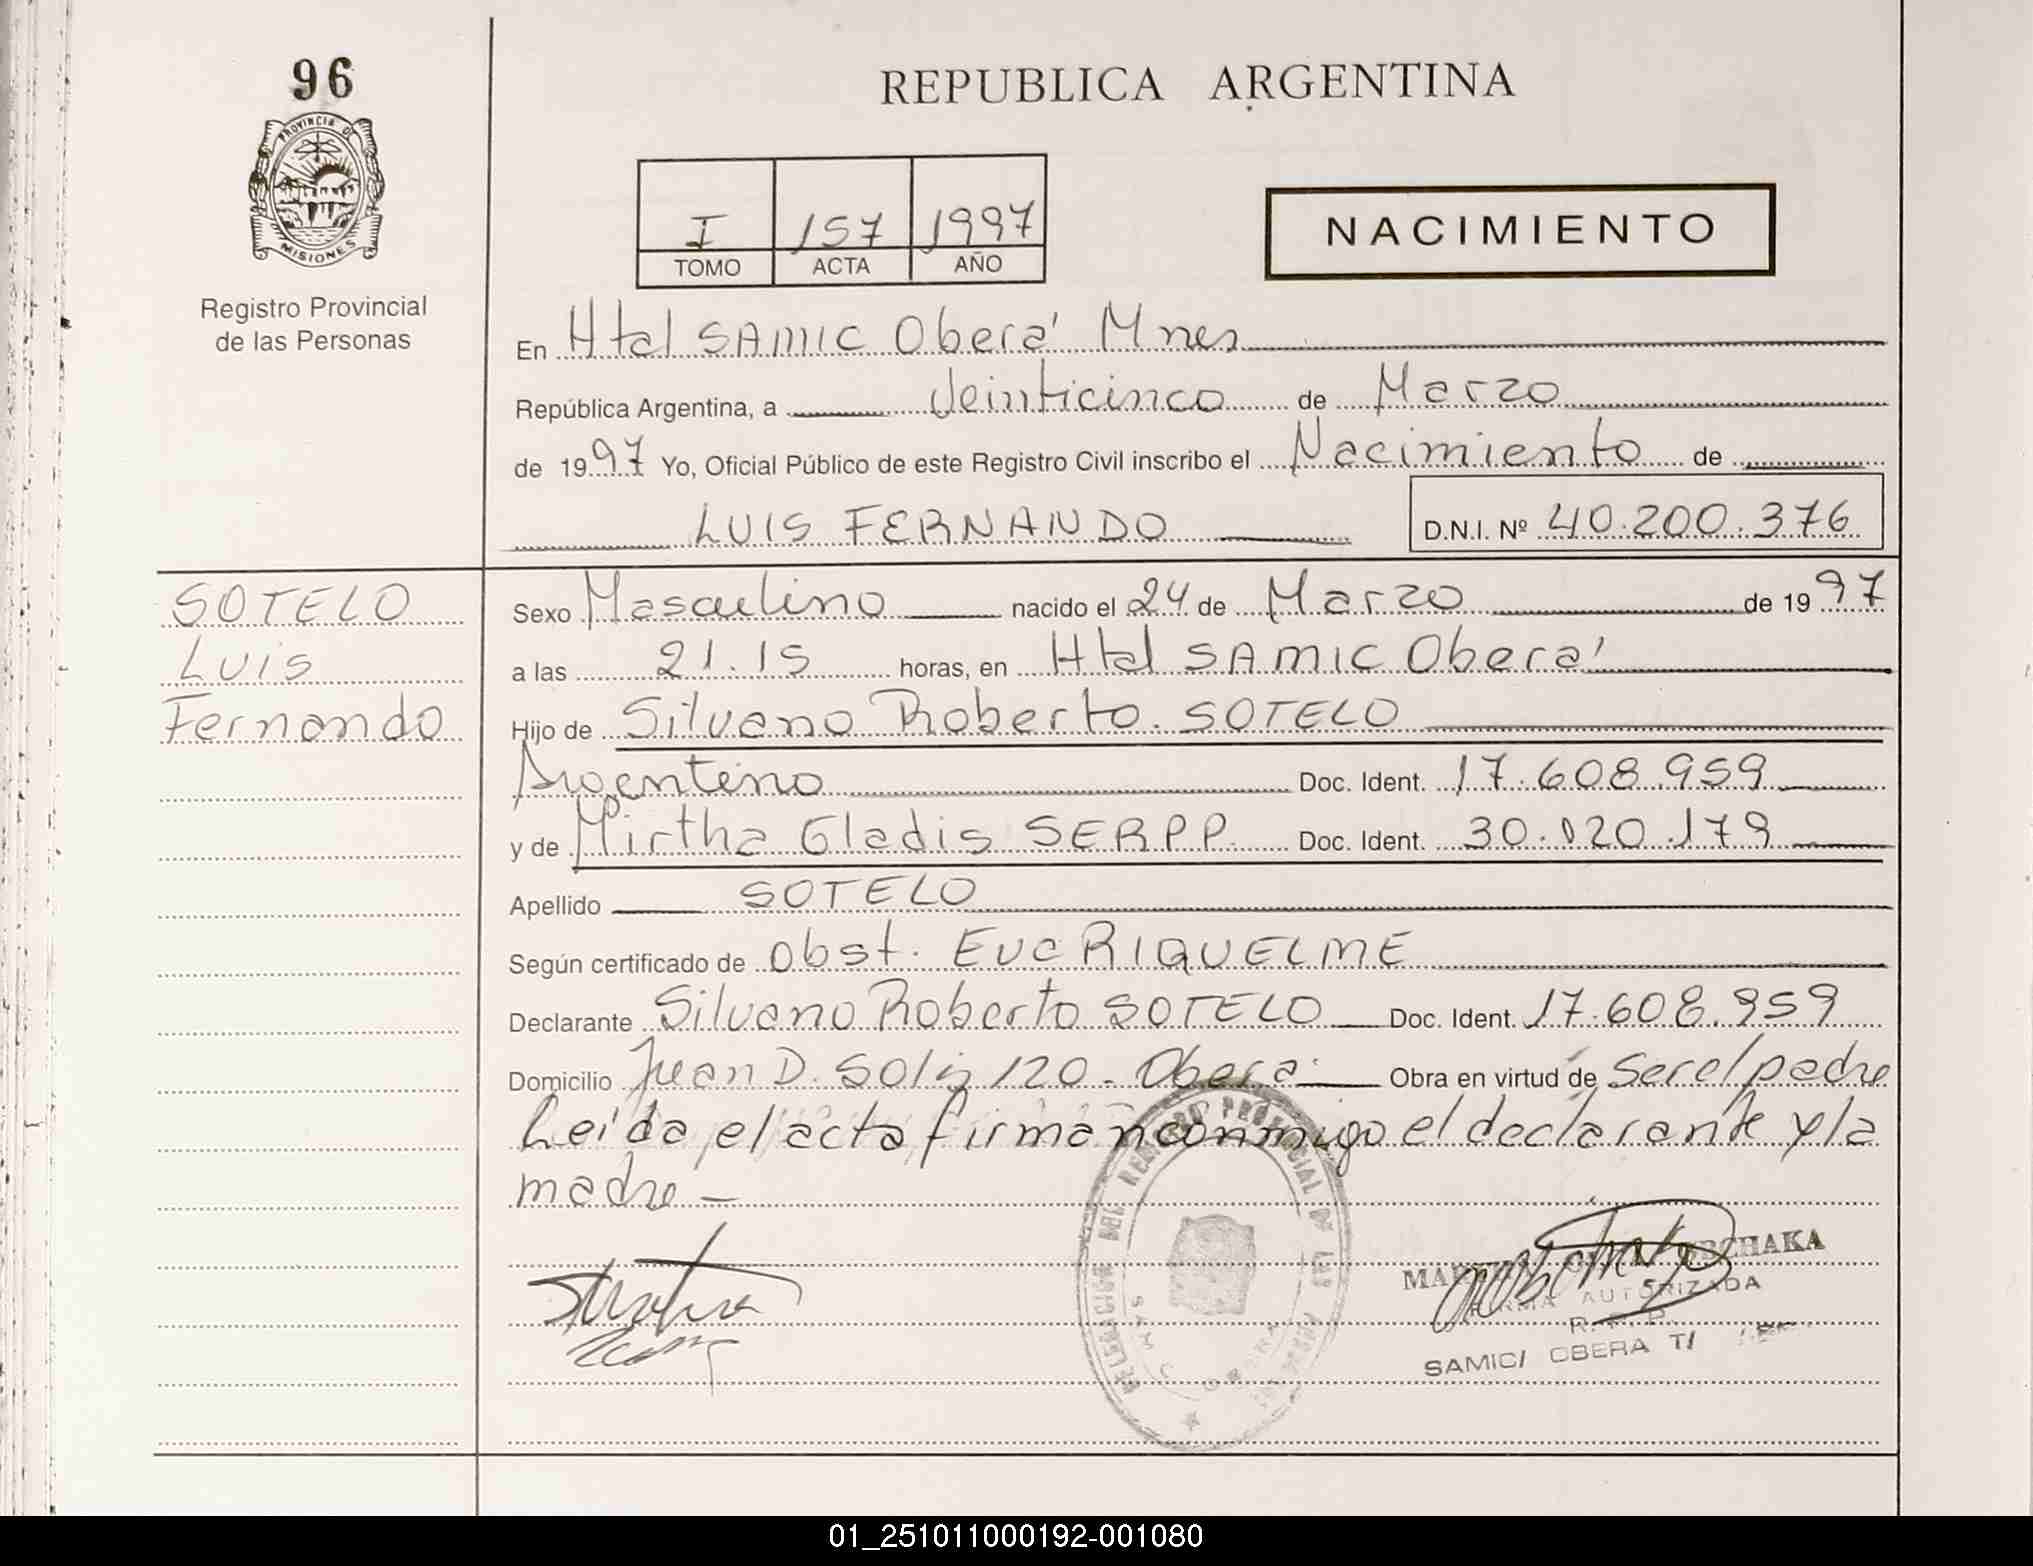 96
REPUBLICA ARGENTINA
PROVINCIA DE
MISIONES
Registro Provincial
de las Personas
I 157 1997
TOMO ACTA AÑO
NACIMIENTO
En Htal SAMIC Oberá Mnes
República Argentina, a Veinticinco de Marzo
de 1997 Yo, Oficial Público de este Registro Civil inscribo el Nacimiento de
LUIS FERNANDO D.N.I. Nº 40.200.376
SOTELO
Luis
Fernando
Sexo Masculino nacido el 24 de Marzo de 1997
a las 21.15 horas, en Htal SAMIC Oberá
Hijo de Silvano Roberto SOTELO
Argentino Doc. Ident. 17.608.959
y de Mirtha Gladis SERPP Doc. Ident. 30.020.179
Apellido SOTELO
Según certificado de Obst. Eva RIQUELME
Declarante Silvano Roberto SOTELO Doc. Ident. 17.608.959
Domicilio Juan D. Solis 120 - Oberá Obra en virtud de ser el padre
Leida el acta firman conmigo el declarante y la
madre -
FIRMA AUTORIZADA
R.P.P.
SAMIC/ OBERA
01_251011000192-001080